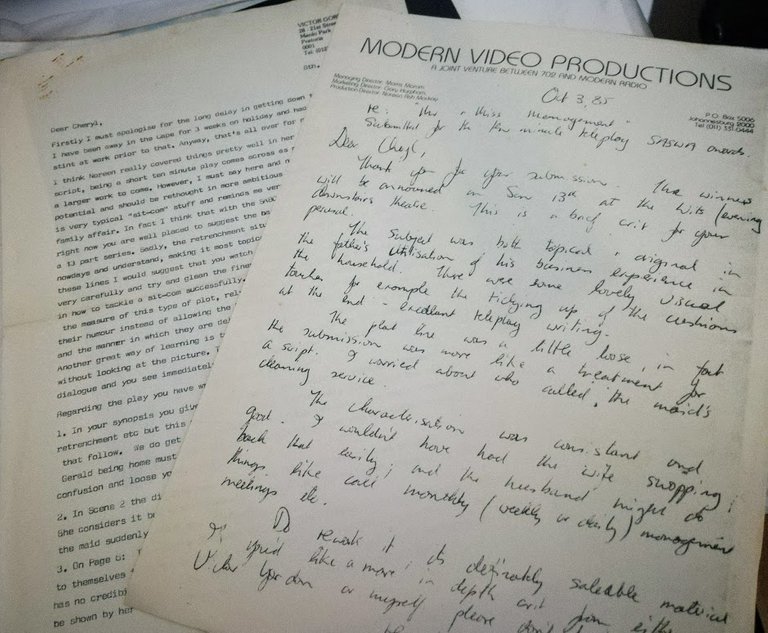 VICTOR GOR
28 - 21st Stree
Menlo Park
Pretoria
0001
Tel. (012
8th.
Dear Cheryl,
Firstly I must apologise for the long delay in getting down t
I have been away in the Cape for 3 weeks on holiday and had
stint at work prior to that. Anyway, that's all over for n
I think Noreen really covered things pretty well in her
script, being a short ten minute play comes across as
a larger work to come. However, I must say here and n
potential and should be rethought in more ambitious
is very typical "sit-com" stuff and reminds me very
family affair. In fact I think that with the SABC
right now you are well placed to suggest the ba
a 13 part series. Sadly, the retrenchment situ
nowadays and understand, making it most topic
these lines I would suggest that you watch
very carefully and try and glean the finer
in how to tackle a sit-com successfully.
the measure of this type of plot, rel
their humour instead of allowing the
and the manner in which they are de
Another great way of learning is t
without looking at the picture.
dialogue and you see immediatel
Regarding the play you have wr
1. In your synopsis you give
retrenchment etc but this
that follow. We do get
Gerald being home must
confusion and loose yo
2. In Scene 2 the di
She considers it b
the maid suddenly
3. On Page 6:
to themselves
has no credib
be shown by her
MODERN VIDEO PRODUCTIONS
A JOINT VENTURE BETWEEN 702 AND MODERN RADIO
Managing Director:
Marketing Director: Gary
Production Director: Noreen Ash Mackay
P.O. Box 5006
Johannesburg 2000
Tel (011) 331-0444
Oct 3, 85
re: "Mr + Miss Management"
Submitted for the ten minute teleplay SASWA awards.
Dear Cheryl,
Thank you for your submission. The winners
will be announced on Sun 13th at the Wits (evening
downstairs theatre. This is a brief crit for your
perusal.
The subject was both topical + original in
the father's utilisation of his business experience in
the household. There were some lovely visual
touches for example the tidying up of the cushions
at the end - excellent teleplay writing.
The plot line was a little loose, in fact
the submission was more like a treatment for
a script. I worried about who called, the maid's
cleaning service.
The characterisation was consistant and
good. I wouldn't have had the wife shopping
back that easily; and the husband might do
things like call monthly (weekly or daily) management
meetings etc.
Do rework it its definately saleable material
If you'd like a more in depth crit from eith
Victor Gordon or myself please don't